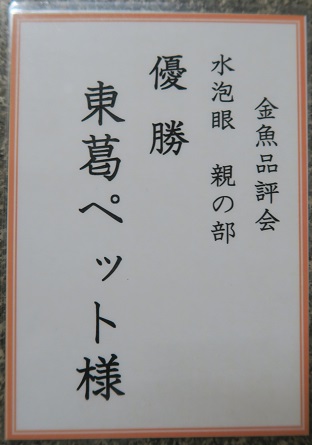 金魚品評会
水泡眼 親の部
優勝
東葛ペット様